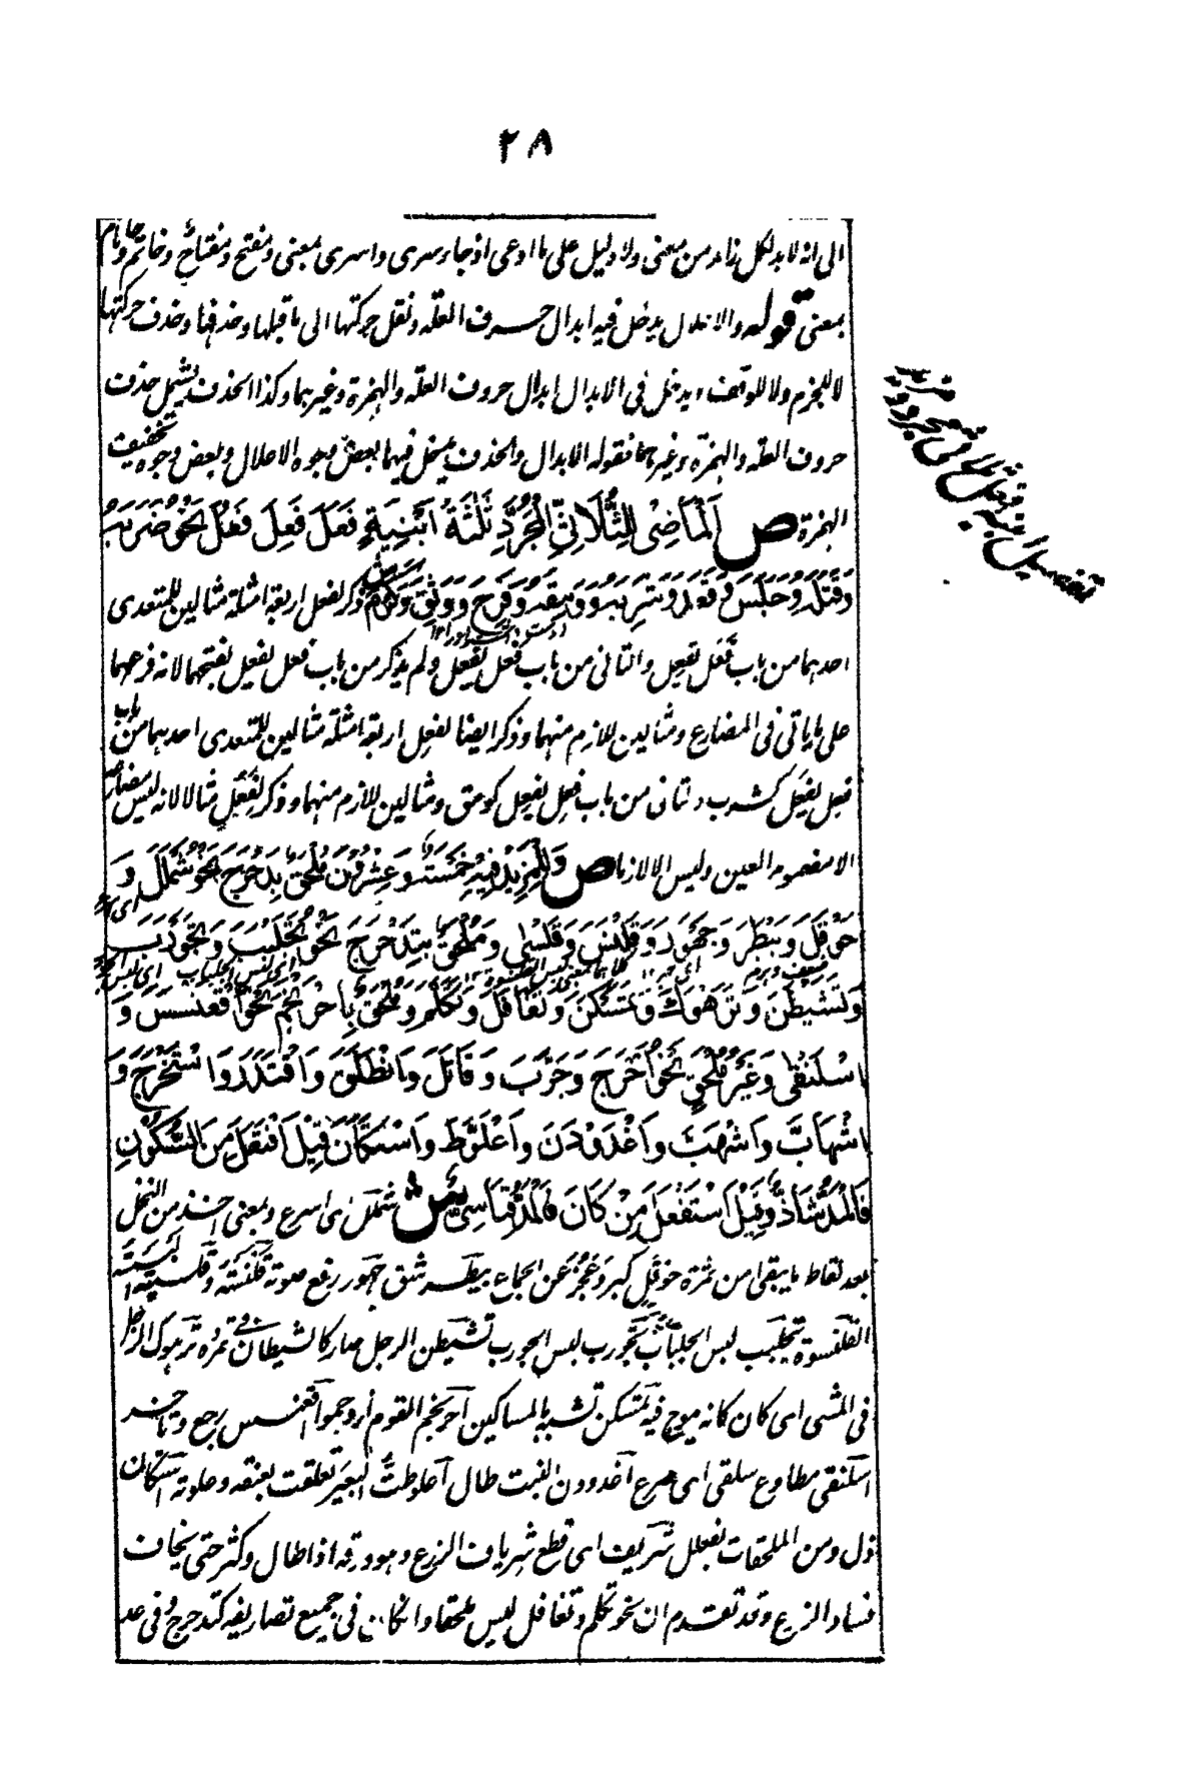 ٢٨
الى انه لا بد لكل زائد من معنى ولا دليل على ما ادعى اذ جاء سرى واسرى بمعنى ومفتح ومفتاح وخاتم وخاتام
بمعنى قوله والاعلال يدخل فيه ابدال حرف العلة ونقل حركتها الى ما قبلها وحذفها وحذف حركتها
لا للجزم ولا للوقف ويدخل فى الابدال ابدال حروف العلة والهمزة وغيرهما وكذا الحذف يشمل حذف
حروف العلة والهمزة وغيرهما فقوله الابدال والحذف يدخل فيهما بعض وجوه الاعلال وبعض وجوه تخفيف
الهمزة ص اَلْمَاضِىْ لِلثُّلَاثِىِّ الْمُجَرَّدِ ثَلٰثَةُ اَبْنِيَةٍ فَعَلَ فَعِلَ فَعُلَ نَحْوُ ضَرَبَ
وَقَتَلَ وَجَلَسَ وَقَعَدَ وَشَرِبَ وَوَمِقَ وَفَرِحَ وَوَثِقَ وَكَرُمَ ش ذكر لفعل اربعة امثلة مثالين للمتعدى
احدهما من باب فعل يفعل والثانى من باب فعل يفعل ولم يذكر من باب فعل يفعل بفتحهما لانه فرعهما
على ما ياتى فى المضارع ومثالين للازم منهما وذكر ايضا لفعل اربعة امثلة مثالين للمتعدى احدهما من باب
فعل يفعل كشرب والثانى من باب فعل يفعل كومق ومثالين للازم منهما وذكر لفعل مثالا لانه ليس مضارعه
الا مضموم العين وليس الا لازما ص وَلِلْمَزِيْدِ فِيْهِ خَمْسَةٌ وَعِشْرُوْنَ مُلْحَقٌ بِدَحْرَجَ نَحْوُ شَمْلَلَ وَ
حَوْقَلَ وَبَيْطَرَ وَجَهْوَرَ وَقَلْنَسَ وَقَلْسٰى وَمُلْحَقٌ بِتَدَحْرَجَ نَحْوُ تَجَلْبَبَ وَتَجَوْرَبَ
وَتَشَيْطَنَ وَتَرَهْوَكَ وَتَمَسْكَنَ وَتَغَافَلَ وَتَكَلَّمَ وَمُلْحَقٌ بِاحْرَنْجَمَ نَحْوُ اقْعَنْسَسَ وَ
اسْلَنْقٰى وَغَيْرُ مُلْحَقٍ نَحْوُ اَخْرَجَ وَجَرَّبَ وَقَاتَلَ وَانْطَلَقَ وَاقْتَدَرَ وَاسْتَخْرَجَ وَ
اشْهَابَّ وَاشْهَبَّ وَاغْدَوْدَنَ وَاعْلَوَّطَ وَاسْتَكَانَ قِيْلَ افْتَعَلَ مِنَ السُّكُوْنِ
فَالْمَدُّ شَاذٌّ وَقِيْلَ اسْتَفْعَلَ مِنْ كَانَ فَالْمَدُّ قِيَاسِىٌّ ش شملل اى اسرع وبمعنى اخذ من النخل
بعد لقاط ما يبقى من ثمرة حوقل كبر وعجز عن الجماع بيطر شق جهور رفع صوته قلنسته وقلسيته البسته
القلنسوة تجلبب لبس الجلباب تجورب لبس الجورب تشيطن الرجل صار كالشيطان فى تمرده ترهوك الرجل
فى المشى اى كان كانه يموج فيه تمسكن تشبه بالمساكين احرنجم القوم ازدحموا اقعنسس رجع وتاخر
اسلنقى مطاوع سلقى اى صرع اغدودن النبت طال اعلوطت البعير تعلقت بعنقه وعلوته استكان
ذل ومن الملحقات بفعلل شريف اى قطع شرياف الزرع وهو ورقه اذا طال وكثر حتى يخاف
فساد الزرع وقد تقدم ان نحو تكلم وتغافل ليس ملحقا وان كان فى جميع تصاريفه كتدحرج وفى عد
تفصيل ابنية فعل ماضى مجرد و مزيد